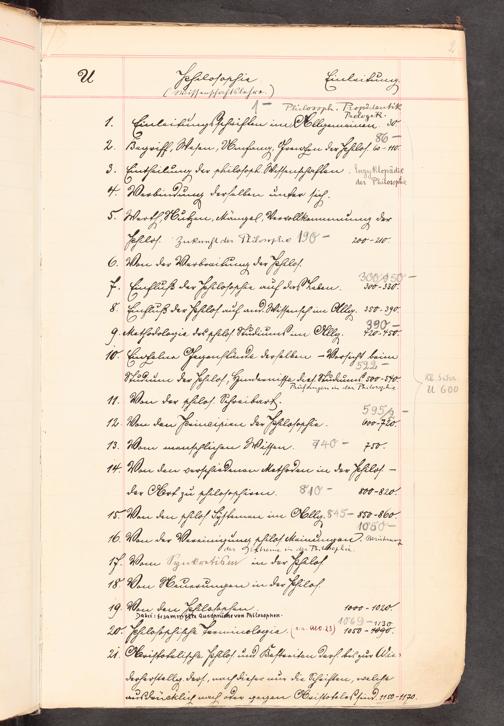 2
U Philosophie Einleitung
(Wissenschaftslehre.)
1 – Philosoph. Propädeutik
1. Einleitungsschriften im Allgemeinen 30.
86 –
2. Begriff, Wesen, Umfang, Grenzen der Philos. 60-110.
3. Eintheilung der philosoph. Wissenschaften. Enzyklopädie
der Philosophie
4. Verbindung derselben unter sich.
5. Werth, Nutzen, Mängel, Vervollkommnung der
Philos. Zukunft der Philosophie 190 – 200-210.
6. Von der Verbreitung der Philos.
7. Einfluß der Philosophie auf das Leben. 300-330.
8. Einfluß der Philos. auf and. Wissensch. im Allg. 350-390.
390 –
9. Methodologie des philos. Studiums im Allg. 420-450.
10. Einzelne Gegenstände derselben – Versuch beim
522 –
Studium der Philos. Hindernisse dies. Studiums 500-540.
Prüfungen in der Philosophie
11. Von der philos. Schreibart. U 600
595 –
12. Von den Principien der Philosophie. 600-720.
13. Vom menschlichen Wissen. 740 – 750.
14. Von den verschiedenen Methoden in der Philos. –
der Art zu philosophiren. 810 – 800-820.
15. Von den philos. Systemen im Allg. 845 – 850-860.
1050 –
16. Von der Vereinigung philos. Meinungen.
der Systeme in der Philosophie.
17. Vom Synkretism in der Philos.
18. Von Neuerungen in der Philos.
19. Von den Philosophen. 1000-1020.
Dabei: Gesammelte Aussprüche von Philosophen.
1069 – 1130
20. Philosophische Terminologie. 1050-1090.
21. Aristotelische Philos. und Bestreiten ders. bis zur Wie-
derherstellg ders., nach dieser nur die Schriften, welche
ausdrücklich nach oder gegen Aristoteles sind. 1150-1170.